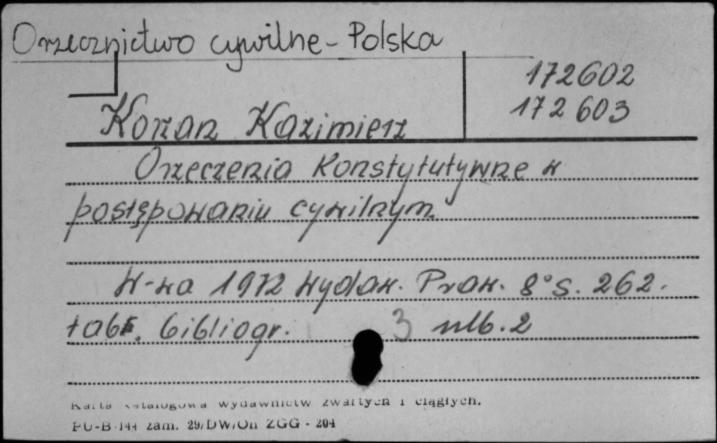 Orzecznictwo cywilne - Polska
172602
172603
Korzan Kazimierz
Orzeczenia konstytutywne w
postępowaniu cywilnym.
W-wa 1972 Wydaw. Praw. 8° s. 262.
tabl. bibliogr. 3 nlb. 2
Karta katalogowa wydawnictw zwartych i ciągłych.
PU-B-144 zam. 29/DW/Oń ZGG - 204